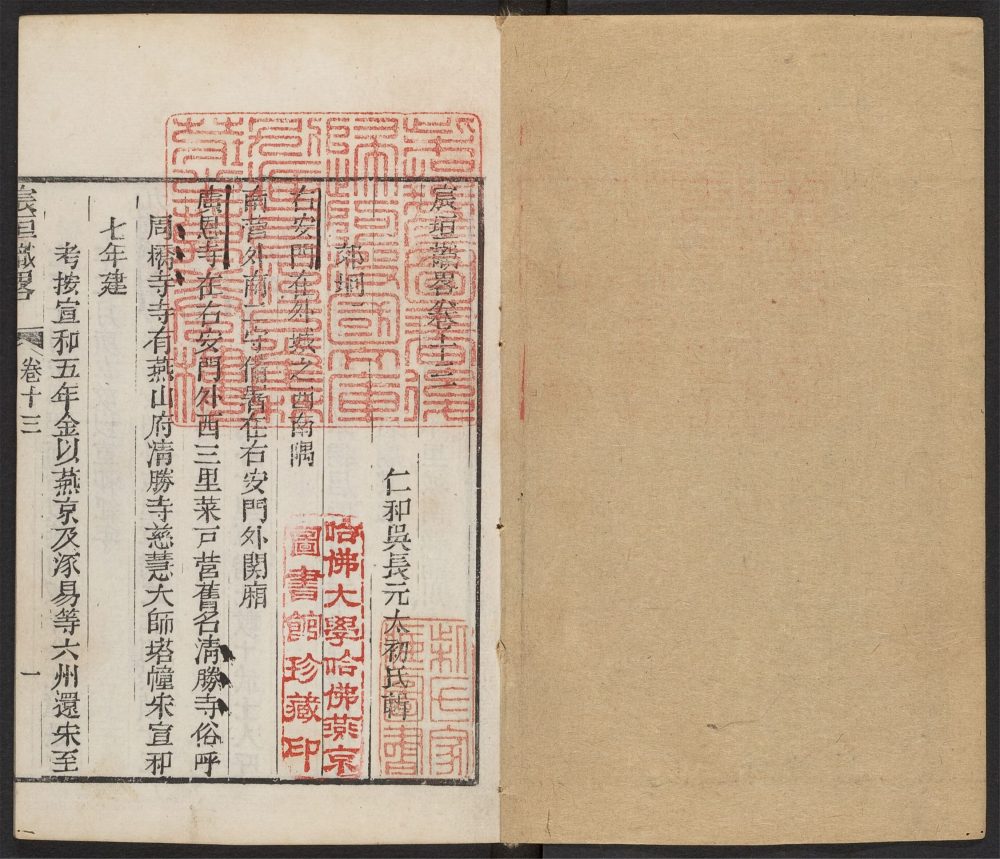 宸垣識畧卷十三
仁和吳長元太初氏輯
郊坰二
右安門在外城之西南隅
南營外南二守備署在右安門外關廂
廣恩寺在右安門外西三里菜戸營舊名淸勝寺俗呼
周橋寺寺有燕山府淸勝寺慈慧大師塔幢宋宣和
七年建
考按宣和五年金以燕京及涿易等六州還宋至
宸垣識畧
卷十三
一
哈佛大學哈佛燕京
圖書館珍藏印